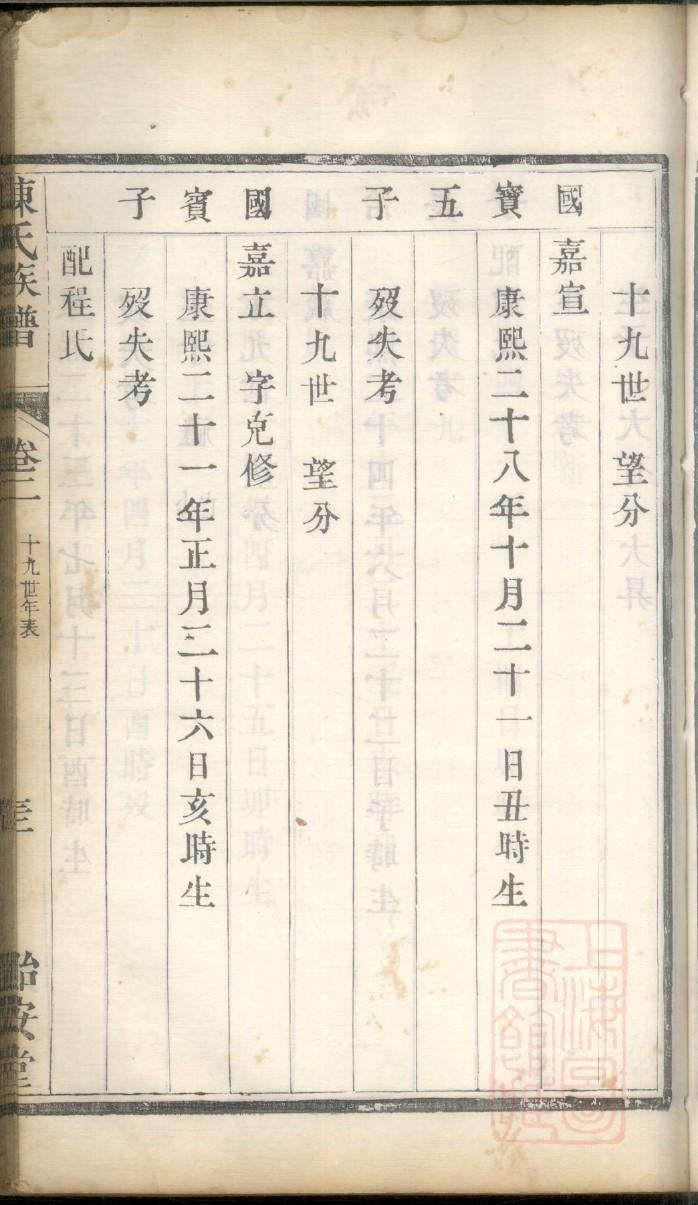 十九世 望分
國 嘉宣
寶 康熙二十八年十月二十一日丑時生
五
子 歿失考
十九世 望分
國 嘉立 字克修
賓 康熙二十一年正月二十六日亥時生
子 歿失考
配程氏
陳氏族譜 卷二 十九世年表 怡安堂
上海圖
書館藏